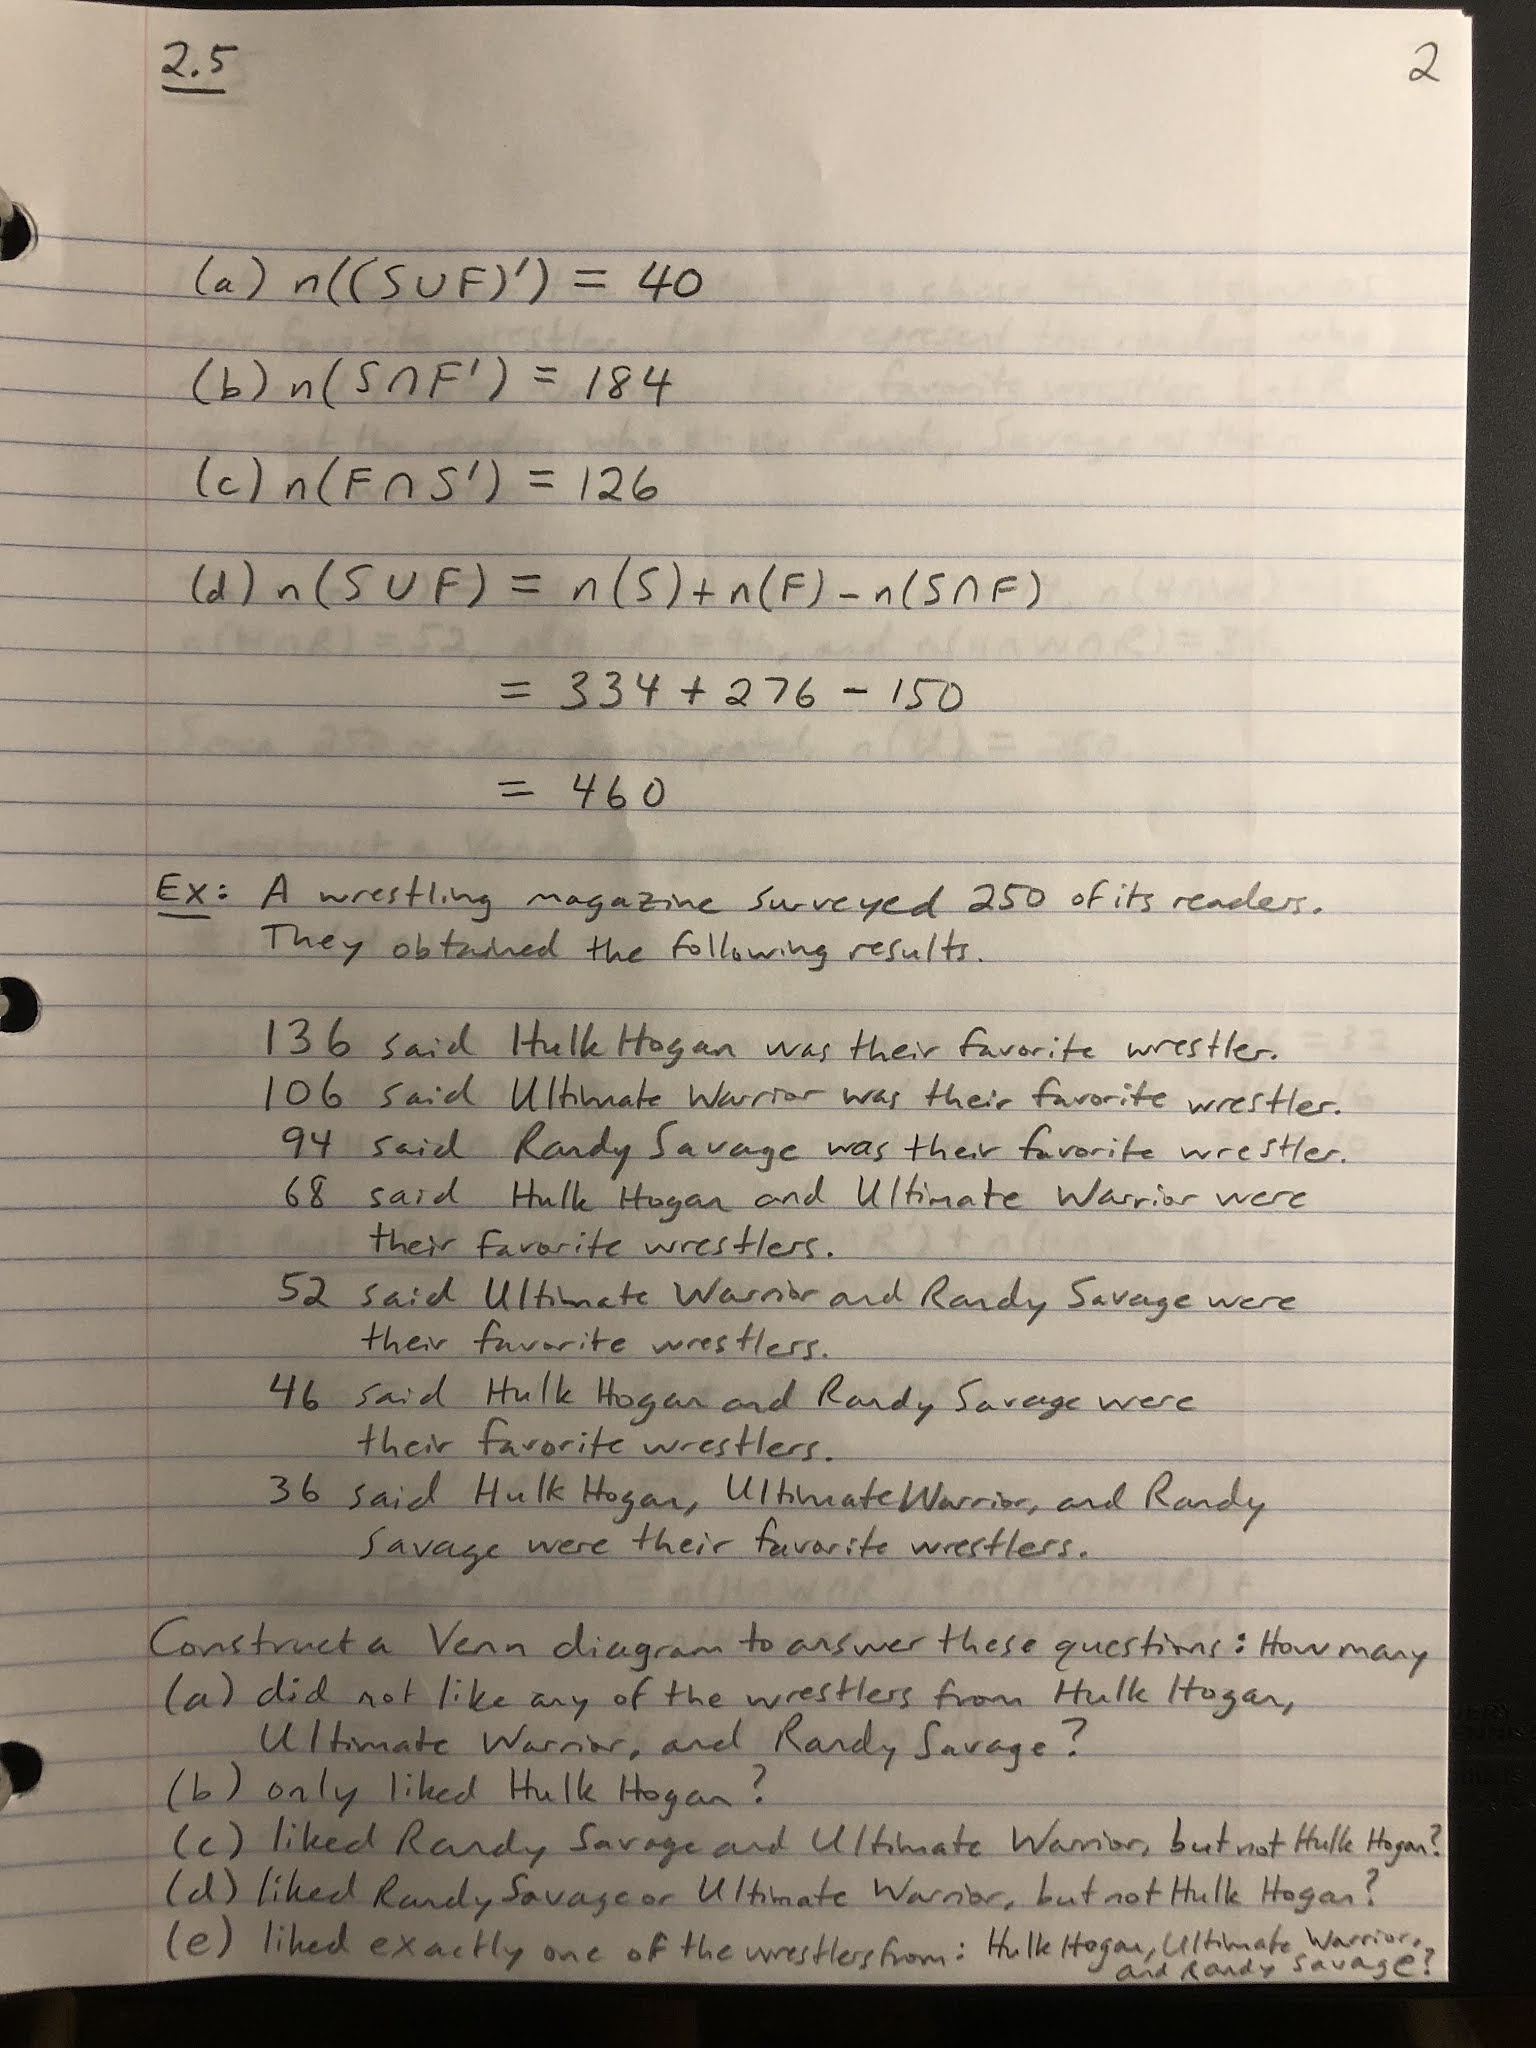 2.5
2
(a) n((S∪F)') = 40
(b) n(S∩F') = 184
(c) n(F∩S') = 126
(d) n(S∪F) = n(S)+n(F)-n(S∩F)
= 334 + 276 - 150
= 460
Ex: A wrestling magazine surveyed 250 of its readers.
They obtained the following results.
136 said Hulk Hogan was their favorite wrestler.
106 said Ultimate Warrior was their favorite wrestler.
94 said Randy Savage was their favorite wrestler.
68 said Hulk Hogan and Ultimate Warrior were
their favorite wrestlers.
52 said Ultimate Warrior and Randy Savage were
their favorite wrestlers.
46 said Hulk Hogan and Randy Savage were
their favorite wrestlers.
36 said Hulk Hogan, Ultimate Warrior, and Randy
Savage were their favorite wrestlers.
Construct a Venn diagram to answer these questions: How many
(a) did not like any of the wrestlers from Hulk Hogan,
Ultimate Warrior, and Randy Savage?
(b) only liked Hulk Hogan?
(c) liked Randy Savage and Ultimate Warrior, but not Hulk Hogan?
(d) liked Randy Savage or Ultimate Warrior, but not Hulk Hogan?
(e) liked exactly one of the wrestlers from: Hulk Hogan, Ultimate Warrior,
and Randy Savage?